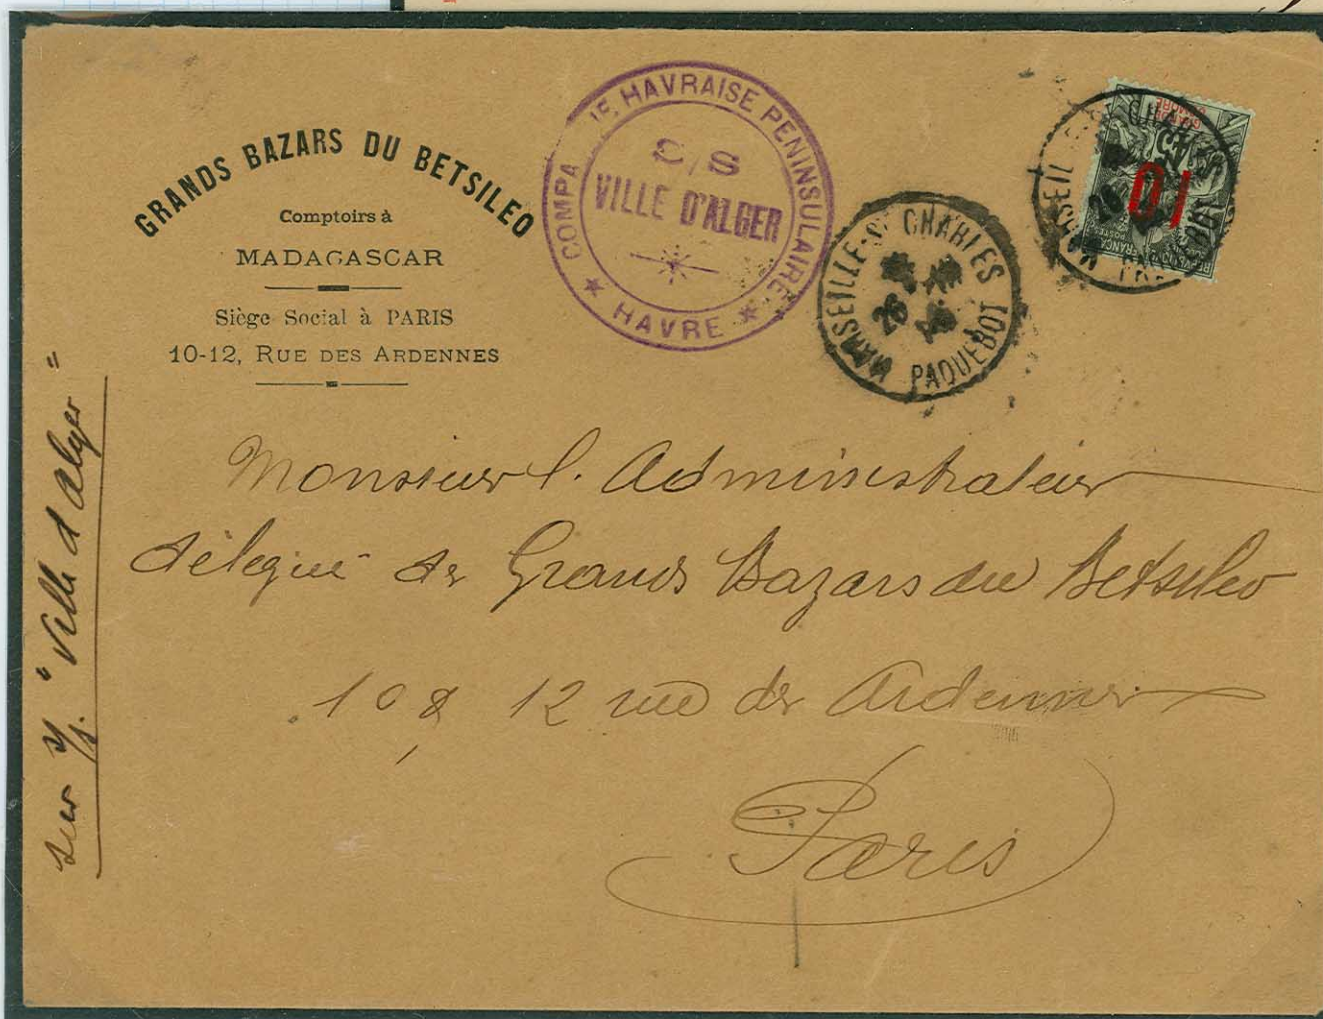 GRANDS BAZARS DU BETSILEO
Comptoirs à
MADAGASCAR
Siège Social à PARIS
10-12, RUE DES ARDENNES
COMPA IE HAVRAISE PENINSULAIRE
S/S
VILLE D'ALGER
★ HAVRE ★
MARSEILLE-St CHARLES
26
PAQUEBOT
10
sur s/s. "Ville d alger"
Monsieur l. Administrateur
délégué des Grands Bazars du Betsileo
10 & 12 rue des Ardennes
Paris